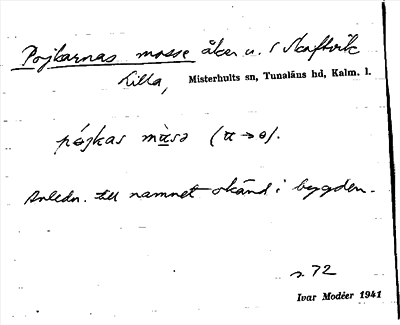 Pojkarnas mosse åker u. / Skaftvik
Lilla,
Misterhults sn, Tunaläns hd, Kalm. l.
pójkas mɷ̀sə (ɷ→ɵ).
Anledn. till namnet okänd i bygden.
s. 72
Ivar Modéer 1941